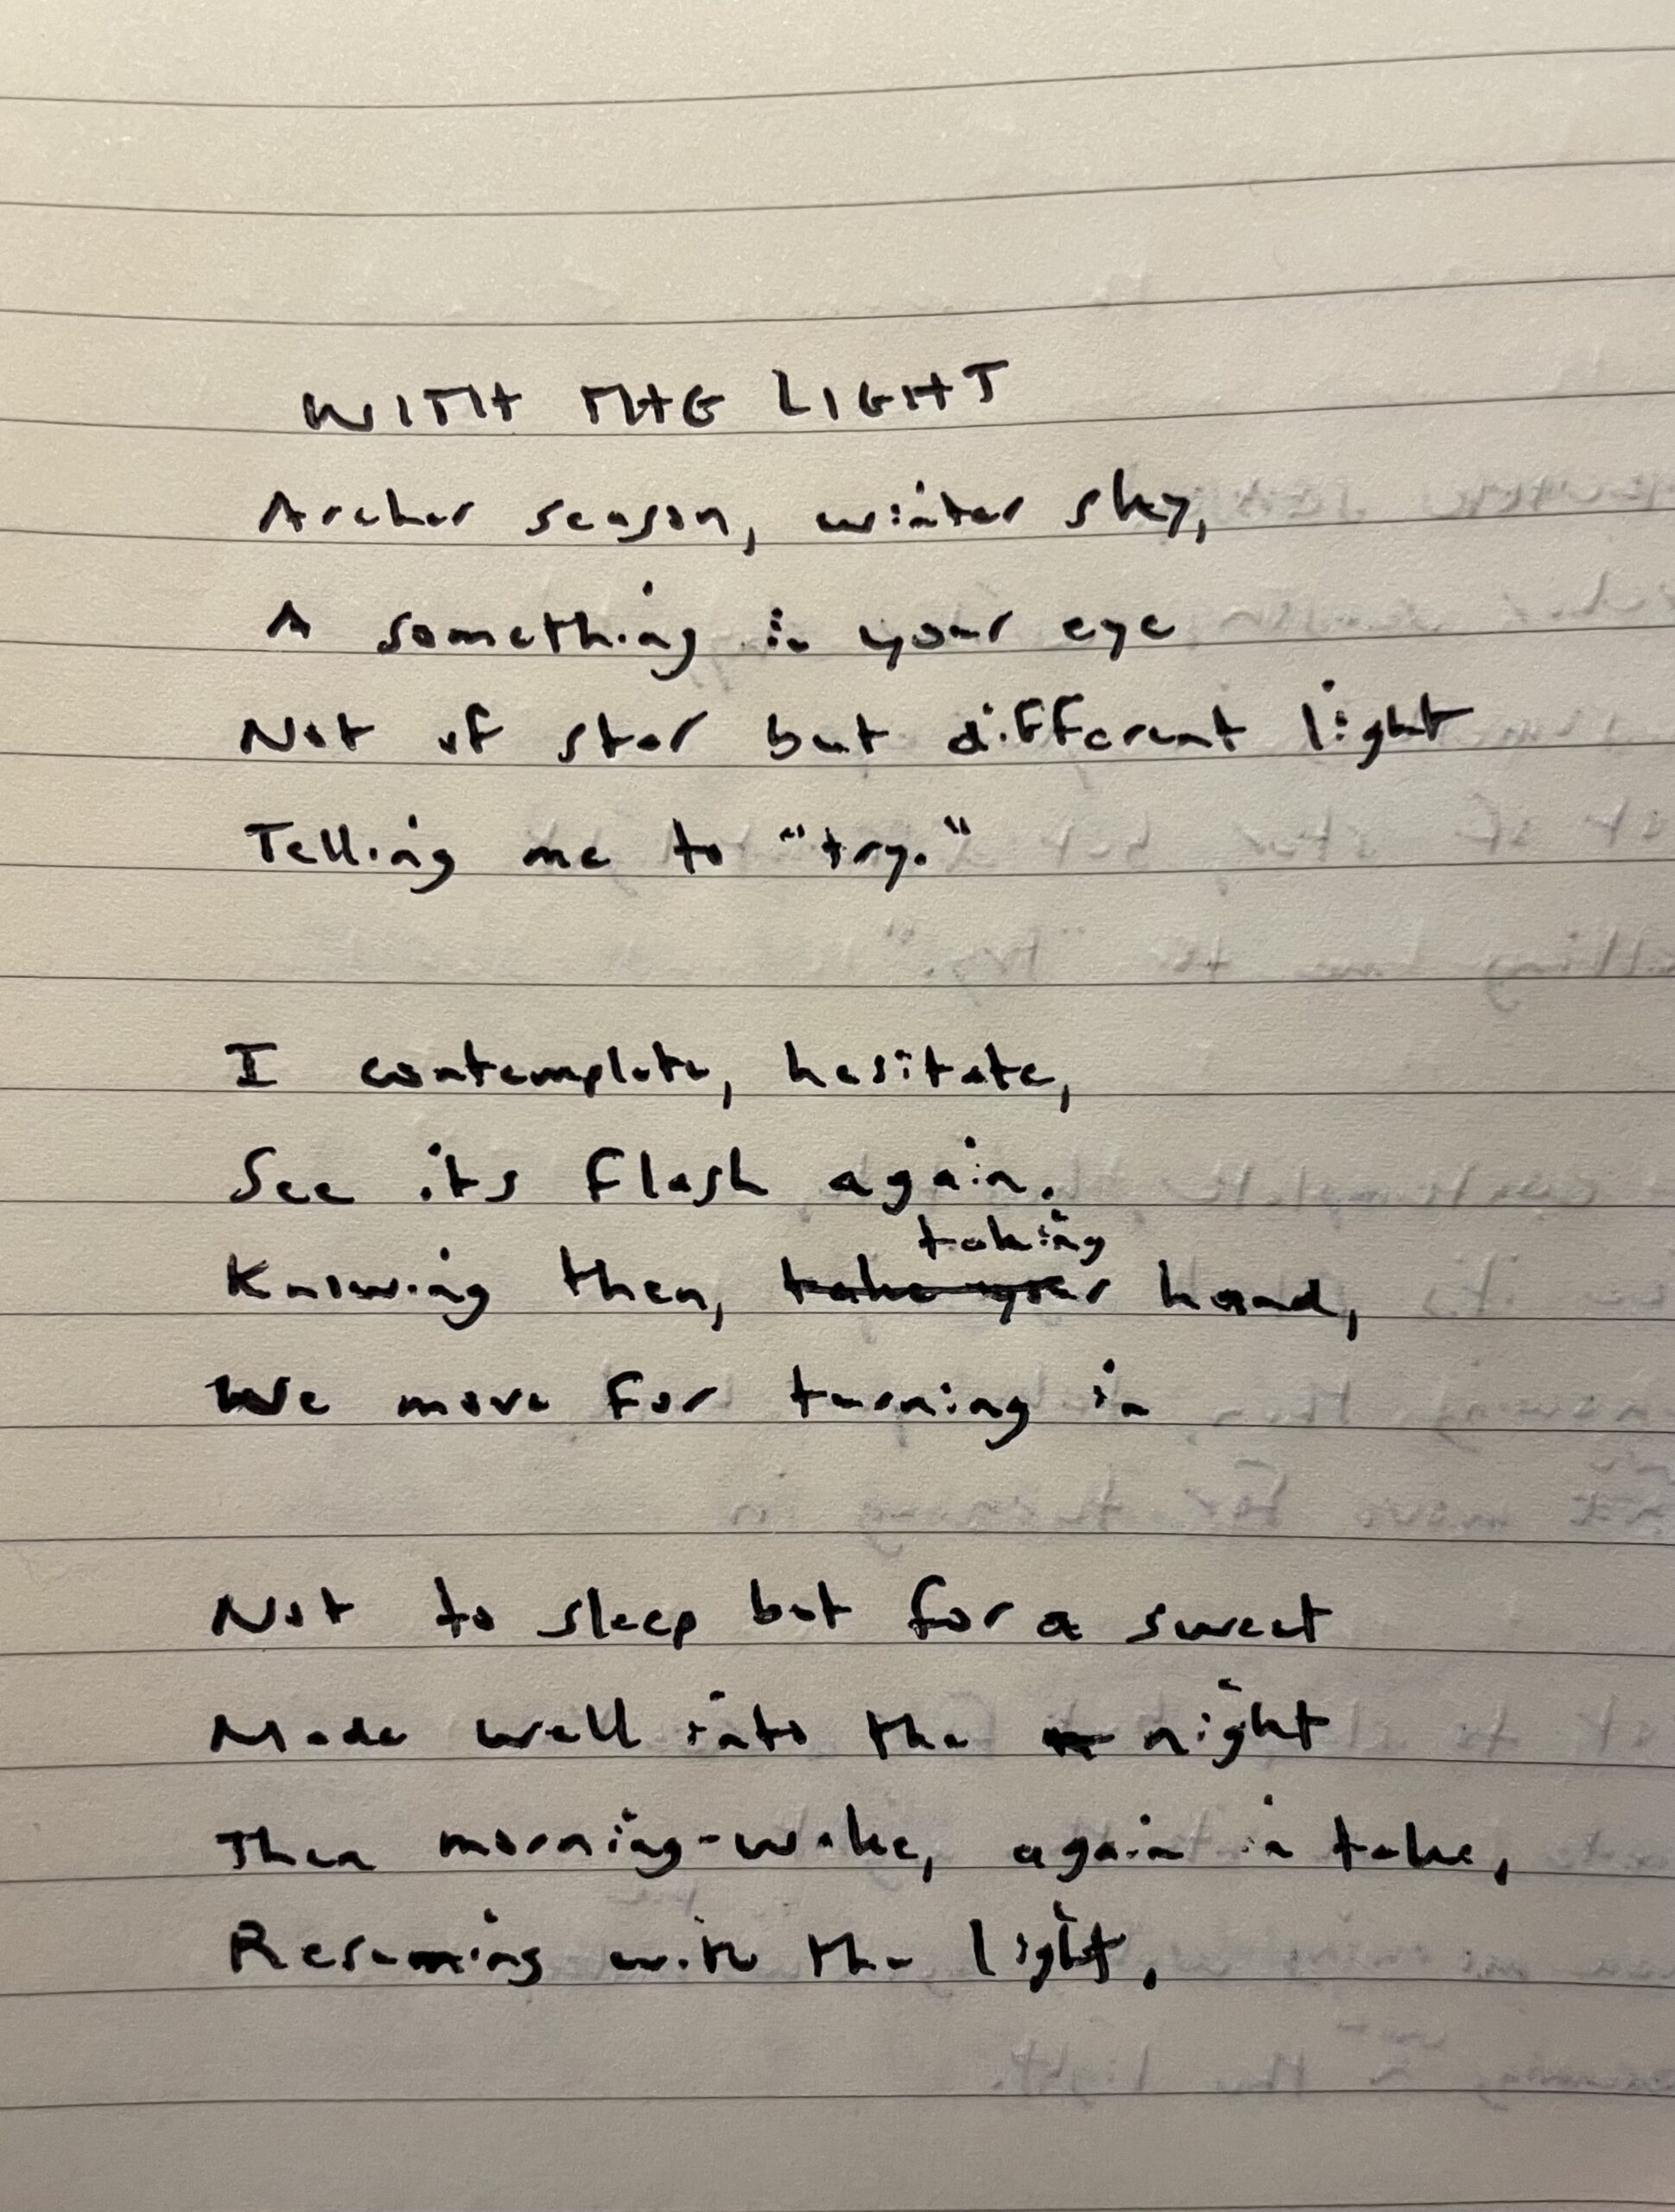 WITH THE LIGHT
Archer season, winter sky,
A something in your eye
Not of star but different light
Telling me to "try."
I contemplate, hesitate,
See its flash again.
taking
Knowing then, take your hand,
We move for turning in
Not to sleep but for a sweet
Made well into the night
Then morning-woke, again in take,
Resuming with the light.